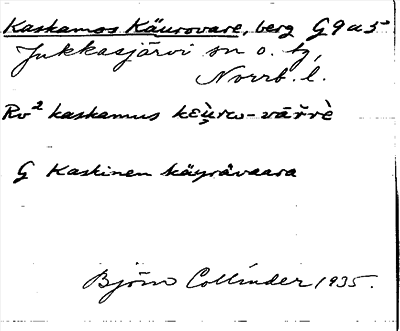 Kaskamos Käurovare, berg G 9 a 5
Jukkasjärvi sn o. tg,
Norrb. l.
Rv² kaskamus kɛù̯rω-vārrè
G Kaskinen käyrävaara
Björn Collinder 1935.